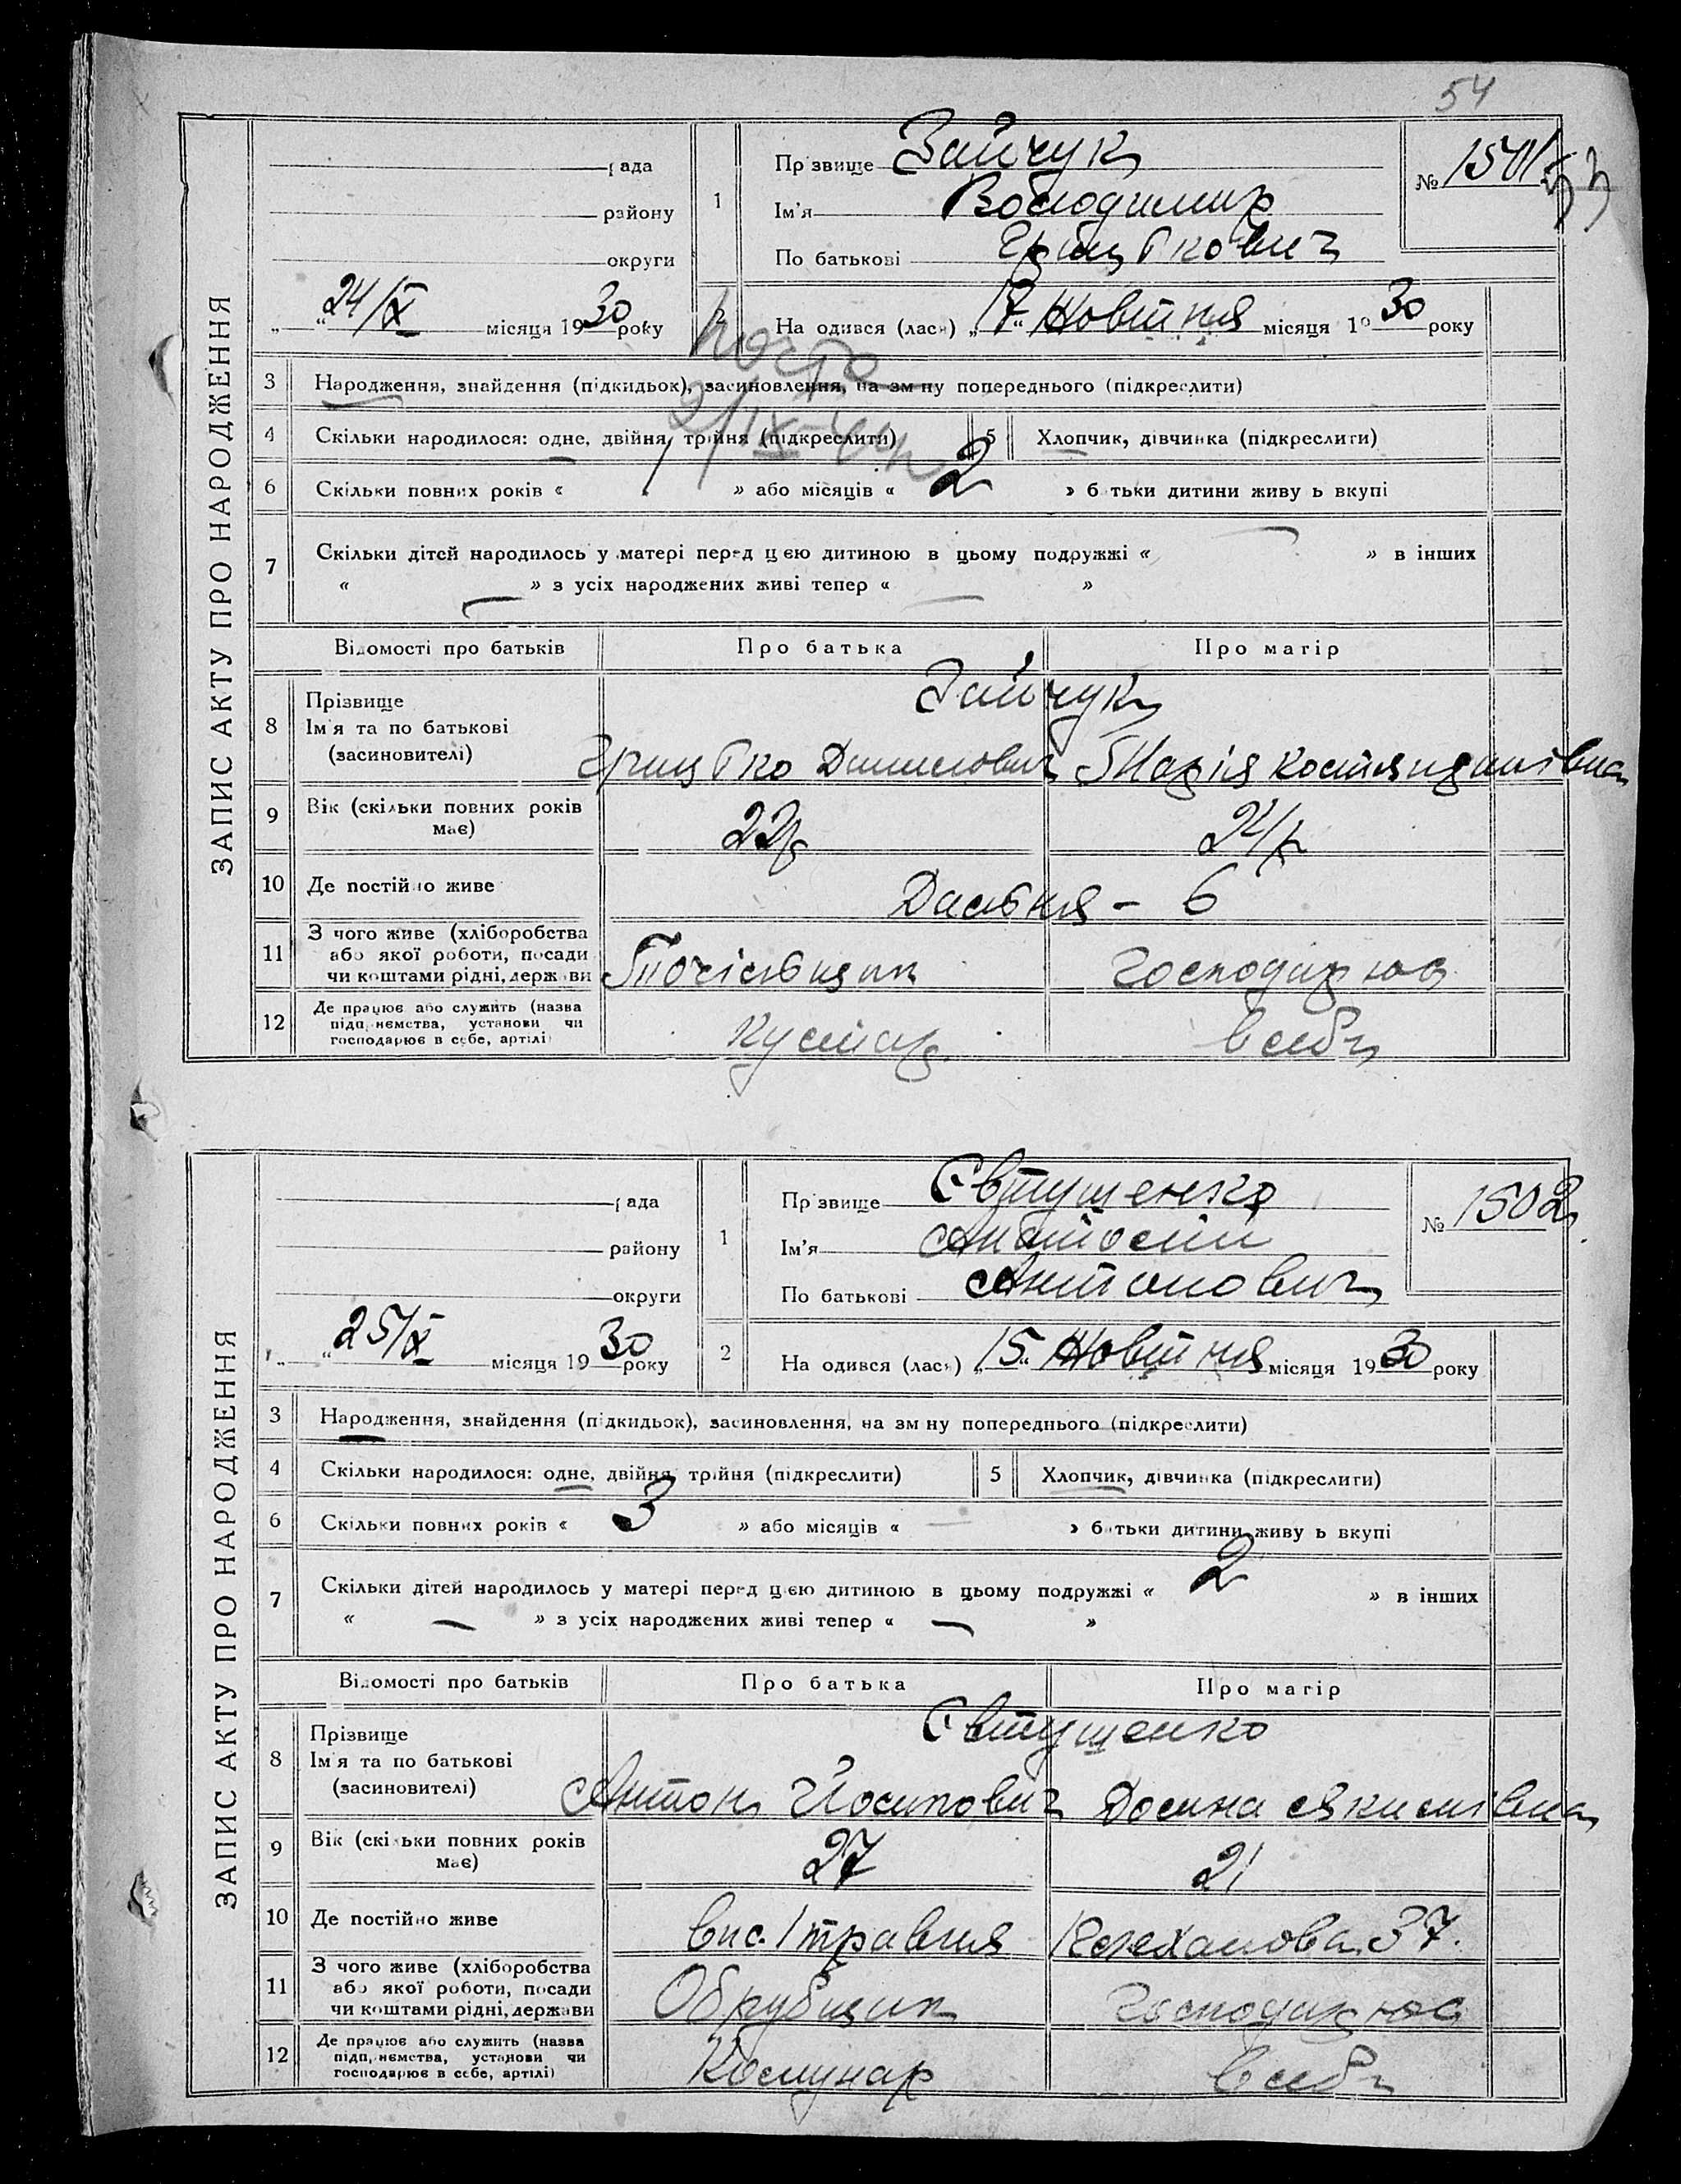 54
ЗАПИС АКТУ ПРО НАРОДЖЕННЯ
рада
району
округи
„ “ 24/X місяця 1930 року
1
Прізвище Зайчук
Ім'я Володимир
По батькові Грицькович
№ 1501
53
2
На одився (лася) „17“ Жовтня місяця 1930 року
3 Народження, знайдення (підкидьок), засиновлення, на зм ну попереднього (підкреслити)
4 Скільки народилося: одне, двійня, трійня (підкреслити) 5 Хлопчик, дівчинка (підкреслити)
6 Скільки повних років « » або місяців « 2 » б тьки дитини живу ь вкупі
7 Скільки дітей народилось у матері перед цією дитиною в цьому подружжі « — » в інших
« — » з усіх народжених живі тепер « — »
Відомості про батьків Про батька Про матір
8 Прізвище
Ім'я та по батькові
(засиновителі)
Зайчук
Грицько Данилович Марія Костянтинівна
9 Вік (скільки повних років має) 22р 24р
10 Де постійно живе Дальня - 6
11 З чого живе (хліборобства
або якої роботи, посади
чи коштами рідні, держави
Точільщик Господарює
12 Де працює або служить (назва
підприємства, установи чи
господарює в себе, артілі)
Кустар в себе
ЗАПИС АКТУ ПРО НАРОДЖЕННЯ
рада
району
округи
„ “ 25/X місяця 1930 року
1
Прізвище Євтушенко
Ім'я Анатолій
По батькові Антонович
№ 1502
2
На одився (лася) „15“ Жовтня місяця 1930 року
3 Народження, знайдення (підкидьок), засиновлення, на зм ну попереднього (підкреслити)
4 Скільки народилося: одне, двійня, трійня (підкреслити) 5 Хлопчик, дівчинка (підкреслити)
6 Скільки повних років « 3 » або місяців « — » батьки дитини живу ь вкупі
7 Скільки дітей народилось у матері перед цією дитиною в цьому подружжі « 2 » в інших
« — » з усіх народжених живі тепер « — »
Відомості про батьків Про батька Про матір
8 Прізвище
Ім'я та по батькові
(засиновителі)
Євтушенко
Антон Йосипович Домна Якимівна
9 Вік (скільки повних років має) 27 21
10 Де постійно живе вис. 1 травня Плеханова 37.
11 З чого живе (хліборобства
або якої роботи, посади
чи коштами рідні, держави
Обрубщик Господарює
12 Де працює або служить (назва
підприємства, установи чи
господарює в себе, артілі)
Комунар в себе